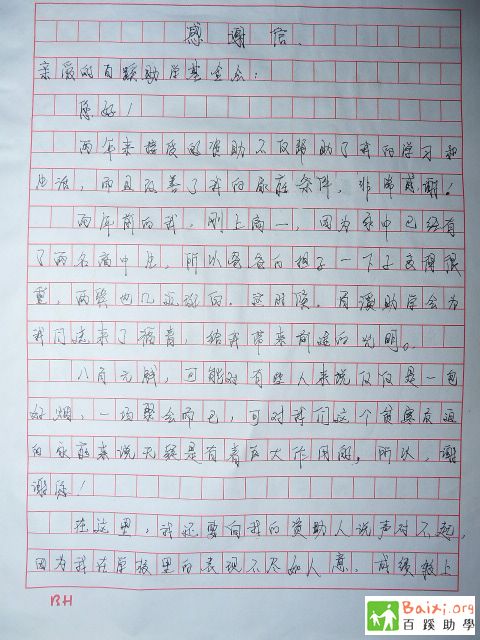 感谢信.
亲爱的百蹊助学基金会：
您好！
两年来接受的资助不仅帮助了我的学习和
生活，而且改善了我的家庭条件，非常感谢！
两年前的我，刚上高一，因为家中已经有
了两名高中生，所以爸爸的担子一下子变得很
重，两鬓也几近斑白。这时候，百蹊助学会为
我们送来了福音，给我带来前途的光明。
八百元钱，可能对有些人来说仅仅是一包
好烟，一场聚会而已，可对我们这个贫寒
的家庭来说无疑是有着巨大作用的，所以，谢
谢您！
在这里，我还要向我的资助人说声对不起，
因为我在学校里的表现不尽如人意，成绩较上
BH
Baixi.org
百蹊助學